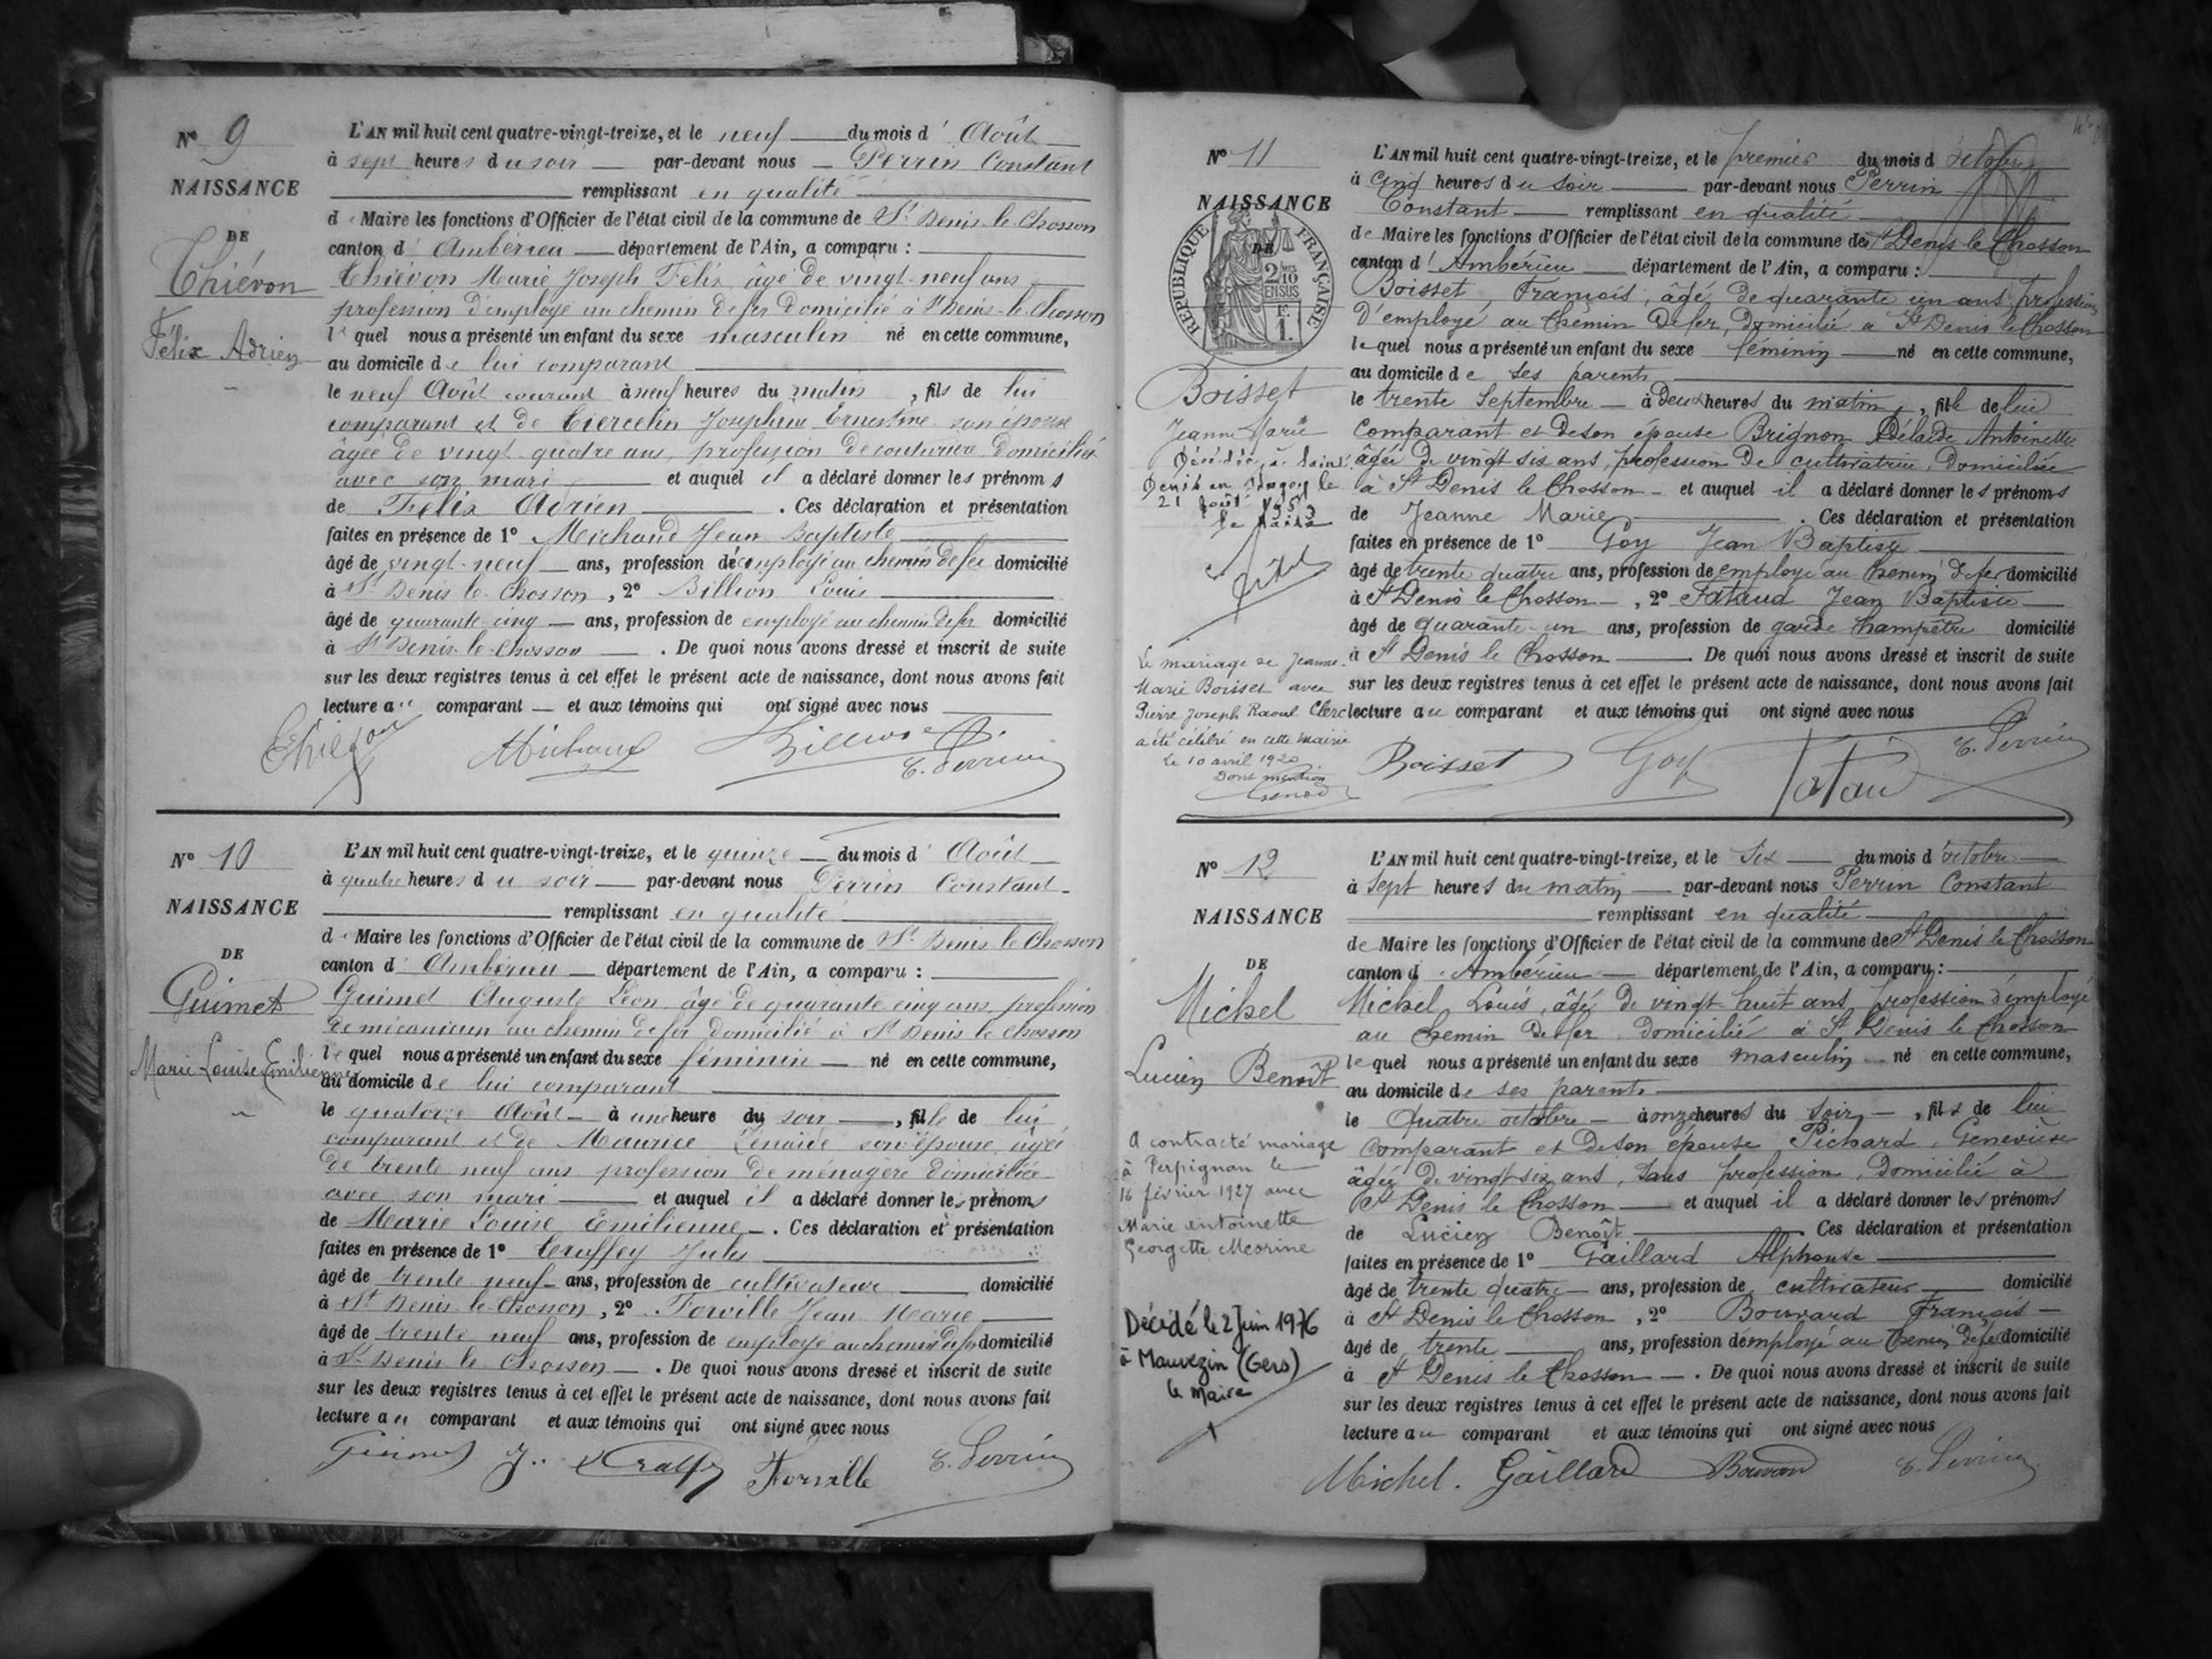 N° 9
NAISSANCE
DE
Thiévon
Félix Adrien
L'AN mil huit cent quatre-vingt-treize, et le neuf du mois d'Août
à sept heures du soir par-devant nous Perrin Constant
remplissant en qualité
de Maire les fonctions d'Officier de l'état civil de la commune de St Denis-le-Chosson
canton d'Ambérieu département de l'Ain, a comparu :
Thiévon Marie Joseph Félix âgé de vingt-neuf ans
profession d'employé au chemin de fer domicilié à St Denis-le-Chosson
lequel nous a présenté un enfant du sexe masculin né en cette commune,
au domicile de lui comparant
le neuf Août courant à neuf heures du matin, fils de lui
comparant et de Tiercelin Joséphine Ernestine son épouse
âgée de vingt-quatre ans, profession de couturière domiciliée
avec son mari et auquel il a déclaré donner les prénoms
de Félix Adrien. Ces déclaration et présentation
faites en présence de 1° Michaud Jean Baptiste
âgé de vingt-neuf ans, profession d'employé au chemin de fer domicilié
à St Denis-le-Chosson, 2° Billion Louis
âgé de quarante-cinq ans, profession de employé au chemin de fer domicilié
à St Denis-le-Chosson. De quoi nous avons dressé et inscrit de suite
sur les deux registres tenus à cet effet le présent acte de naissance, dont nous avons fait
lecture au comparant et aux témoins qui ont signé avec nous
Michaud
C. Perrin
N° 10
NAISSANCE
DE
Guimet
Marie Louise Emilienne
L'AN mil huit cent quatre-vingt-treize, et le quinze du mois d'Août
à quatre heures du soir par-devant nous Perrin Constant
remplissant en qualité
de Maire les fonctions d'Officier de l'état civil de la commune de St Denis-le-Chosson
canton d'Ambérieu département de l'Ain, a comparu :
Guimet Auguste Léon âgé de quarante cinq ans, profession
de mécanicien au chemin de fer domicilié à St Denis le Chosson
lequel nous a présenté un enfant du sexe féminin né en cette commune,
au domicile de lui comparant
le quatorze Août à une heure du soir, fille de lui
comparant et de Maurice Zénaïde son épouse, âgée
de trente neuf ans profession de ménagère domiciliée
avec son mari et auquel il a déclaré donner les prénoms
de Marie Louise Emilienne. Ces déclaration et présentation
faites en présence de 1° Truffey Jules
âgé de trente neuf ans, profession de cultivateur domicilié
à St Denis-le-Chosson, 2° Forville Jean Marie
âgé de trente neuf ans, profession de employé au chemin de fer domicilié
à St Denis le Chosson. De quoi nous avons dressé et inscrit de suite
sur les deux registres tenus à cet effet le présent acte de naissance, dont nous avons fait
lecture au comparant et aux témoins qui ont signé avec nous
Guimet Forville C. Perrin
N° 11
NAISSANCE
DE
RÉPUBLIQUE FRANÇAISE
2/10 EN SUS
Boisset
Jeanne Marie
Décédée à Saint
Denis en Bugey le
21 Août 1953
le Maire
Le mariage de Jeanne-
Marie Boisset avec
Pierre Joseph Raoul Clerc
a été célébré en cette mairie
le 10 avril 1920.
Dont mention
L'AN mil huit cent quatre-vingt-treize, et le premier du mois d'octobre
à cinq heures du soir par-devant nous Perrin
Constant remplissant en qualité
de Maire les fonctions d'Officier de l'état civil de la commune de St Denis le Chosson
canton d'Ambérieu département de l'Ain, a comparu :
Boisset, François, âgé de quarante un ans profession
d'employé au chemin de fer, domicilié à St Denis le Chosson
lequel nous a présenté un enfant du sexe féminin né en cette commune,
au domicile de ses parents
le trente Septembre à deux heures du matin, fille de lui
comparant et de son épouse Brignon Adélaïde Antoinette
âgée de vingt six ans, profession de cultivatrice, domiciliée
à St Denis le Chosson et auquel il a déclaré donner les prénoms
de Jeanne Marie. Ces déclaration et présentation
faites en présence de 1° Goy Jean Baptiste
âgé de trente quatre ans, profession de employé au chemin de fer domicilié
à St Denis le Chosson, 2° Fataud Jean Baptiste
âgé de quarante-un ans, profession de garde champêtre domicilié
à St Denis le Chosson. De quoi nous avons dressé et inscrit de suite
sur les deux registres tenus à cet effet le présent acte de naissance, dont nous avons fait
lecture au comparant et aux témoins qui ont signé avec nous
Boisset Goy Fataud C. Perrin
N° 12
NAISSANCE
DE
Michel
Lucien Benoît
A contracté mariage
à Perpignan le
16 février 1927 avec
Marie Antoinette
Georgette Mesrine
Décédé le 2 Juin 1976
à Mauvezin (Gers)
le Maire
L'AN mil huit cent quatre-vingt-treize, et le six du mois d'octobre
à sept heures du matin par-devant nous Perrin Constant
remplissant en qualité
de Maire les fonctions d'Officier de l'état civil de la commune de St Denis le Chosson
canton d'Ambérieu département de l'Ain, a comparu :
Michel Louis, âgé de vingt huit ans, profession d'employé
au chemin de fer, domicilié à St Denis le Chosson
lequel nous a présenté un enfant du sexe masculin né en cette commune,
au domicile de ses parents
le quatre octobre à onze heures du soir, fils de lui
comparant et de son épouse Pichard, Geneviève
âgée de vingt-six ans, sans profession, domiciliée à
St Denis le Chosson et auquel il a déclaré donner les prénoms
de Lucien Benoît Ces déclaration et présentation
faites en présence de 1° Gaillard Alphonse
âgé de trente quatre ans, profession de cultivateur domicilié
à St Denis le Chosson, 2° Bouvard François
âgé de trente ans, profession d'employé au chemin de fer domicilié
à St Denis le Chosson. De quoi nous avons dressé et inscrit de suite
sur les deux registres tenus à cet effet le présent acte de naissance, dont nous avons fait
lecture au comparant et aux témoins qui ont signé avec nous
Michel. Gaillard Bouvard C. Perrin